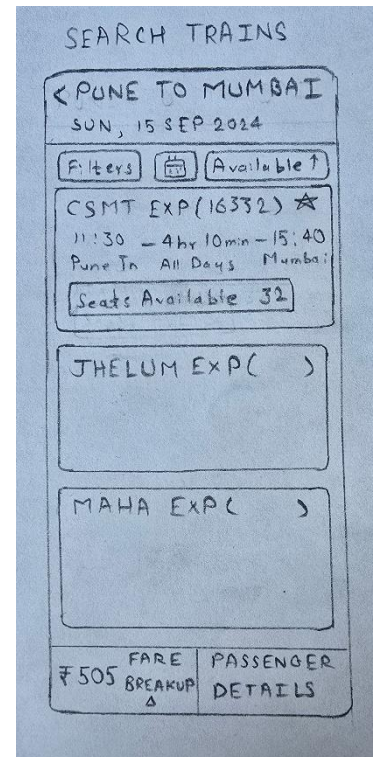 SEARCH TRAINS
< PUNE TO MUMBAI
SUN, 15 SEP 2024
Filters Available ↑
CSMT EXP(16332) ☆
11:30 - 4hr 10min - 15:40
Pune Jn All Days Mumbai
Seats Available 32
JHELUM EXP( )
MAHA EXP( )
₹505 FARE BREAKUP
PASSENGER DETAILS